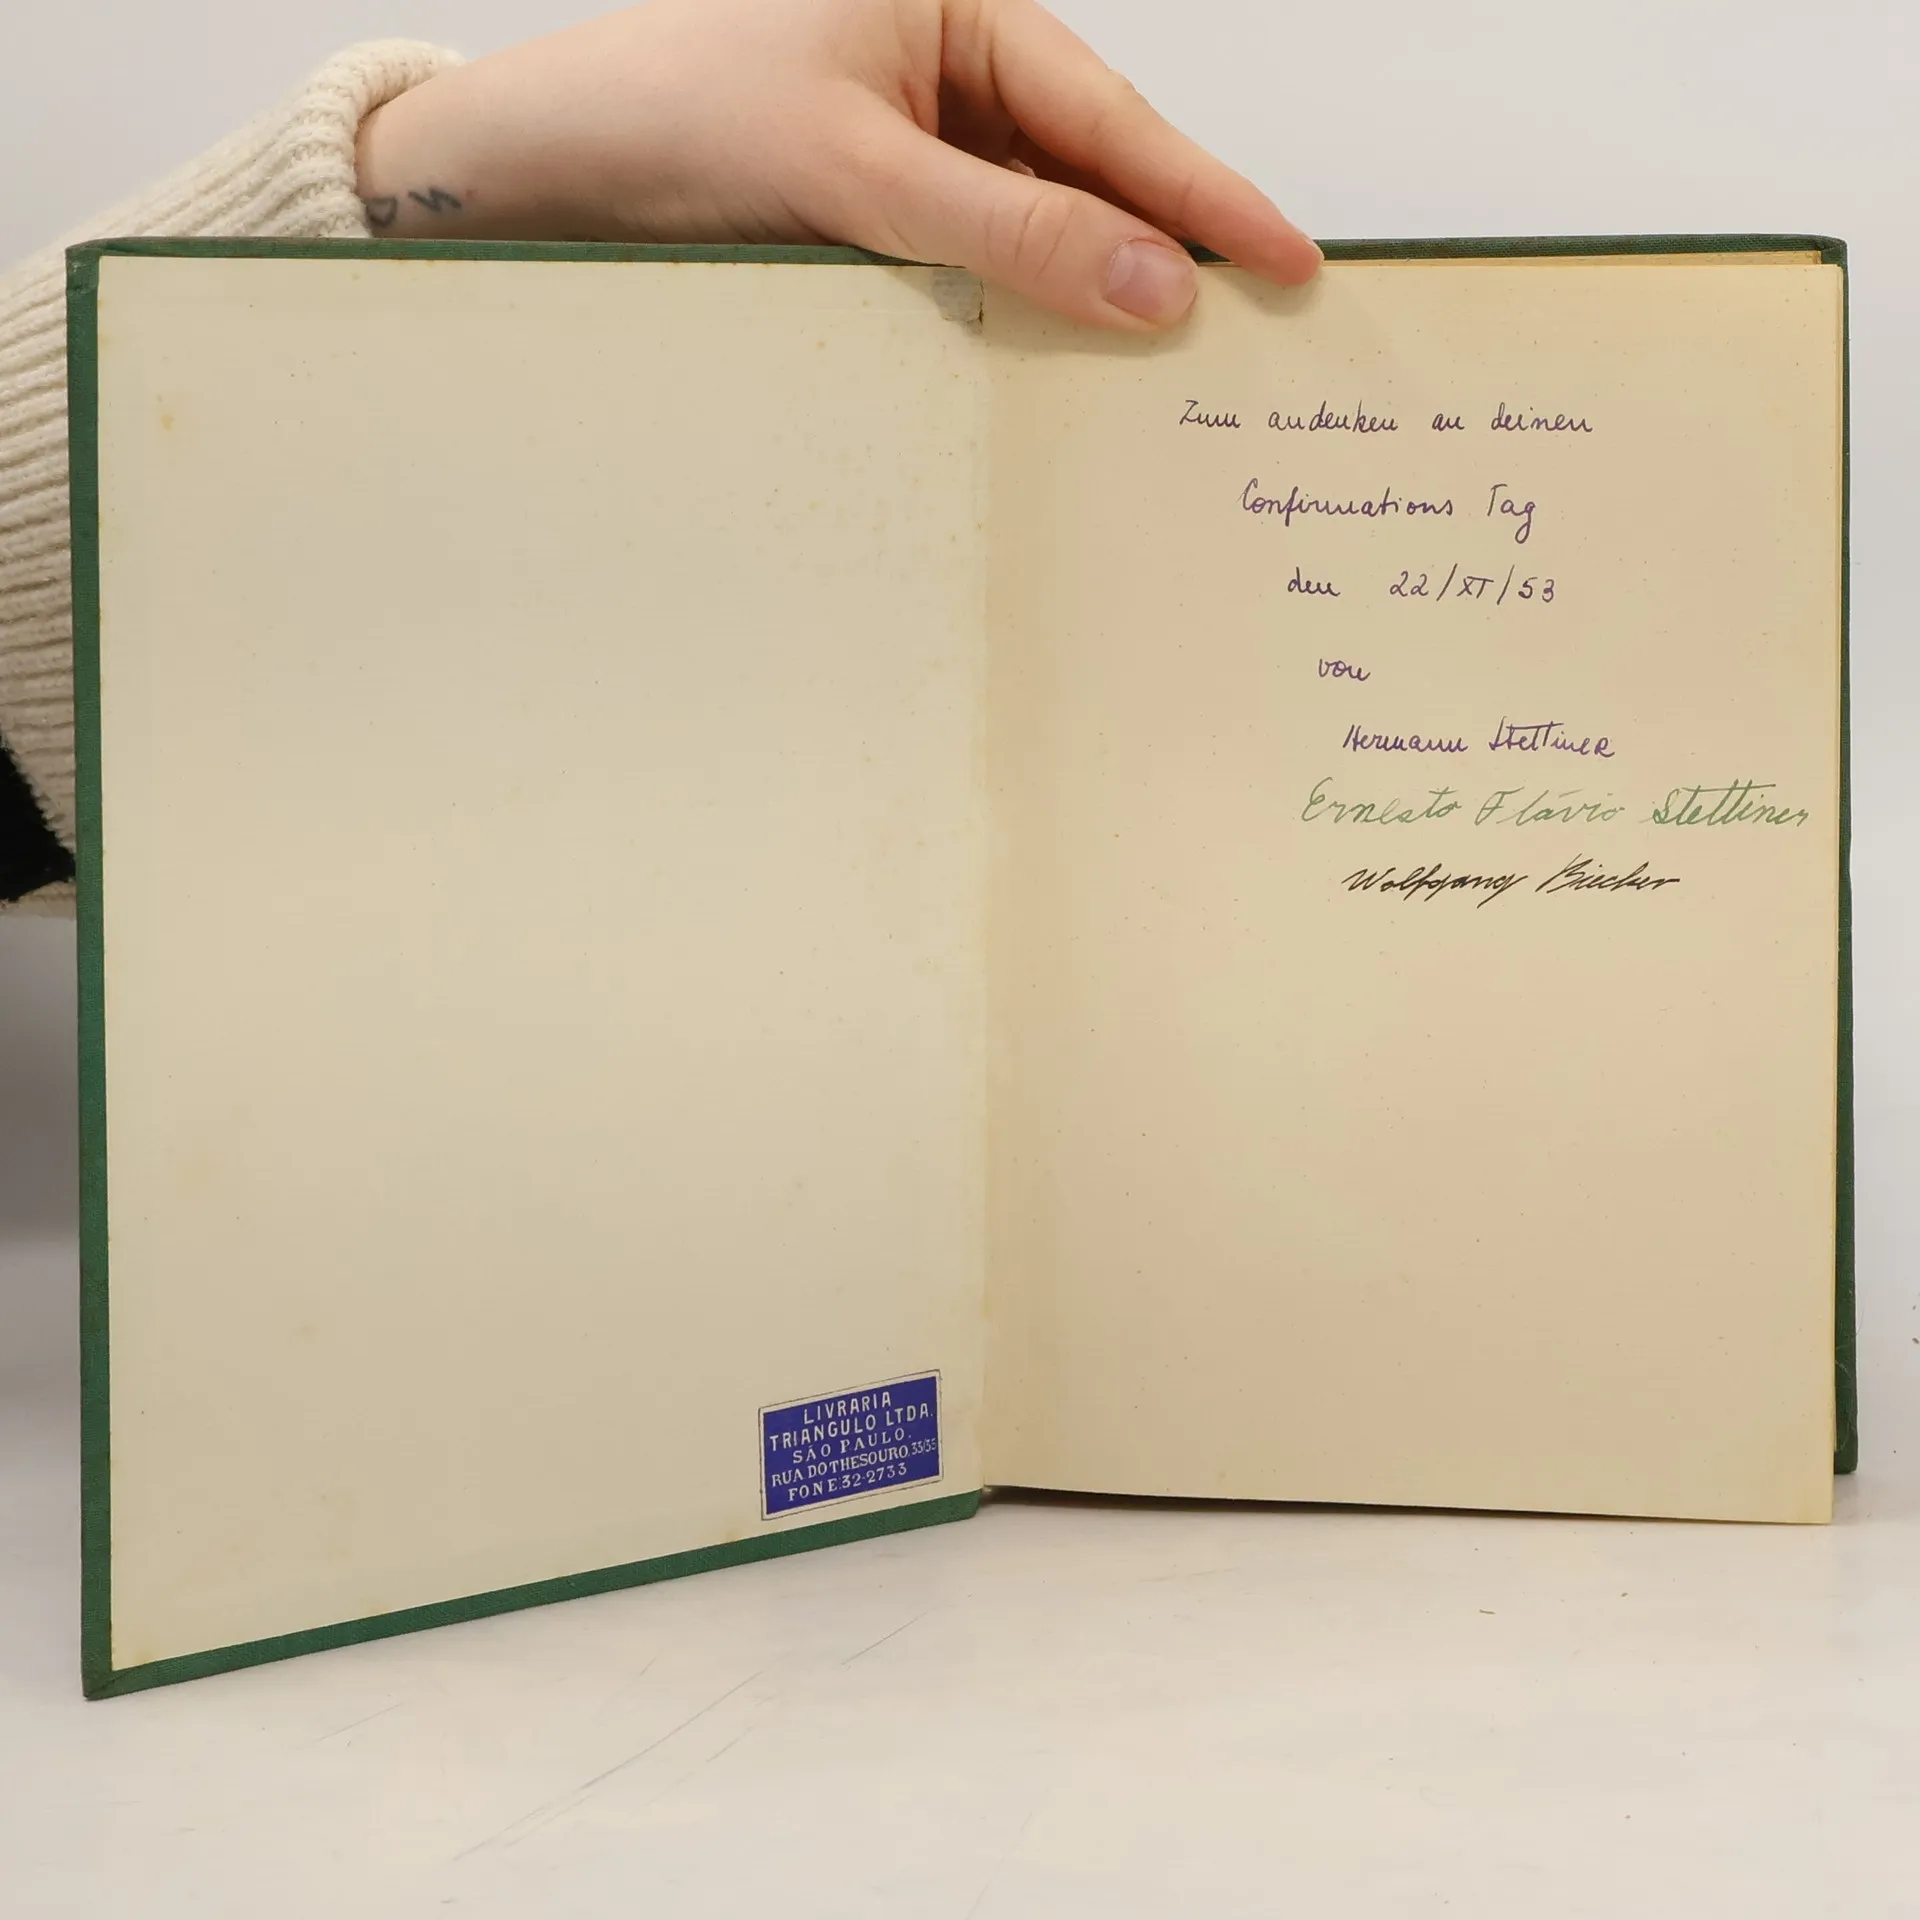 Zum andenken an deinen
Confirmations Tag
den 22/XI/53
von
Hermann Stettiner
Ernesto Flávio Stettiner
Wolfgang
LIVRARIA
TRIANGULO LTDA.
SÁO PAULO.
RUA DO THESOURO. 33/35
FONE.32-2733